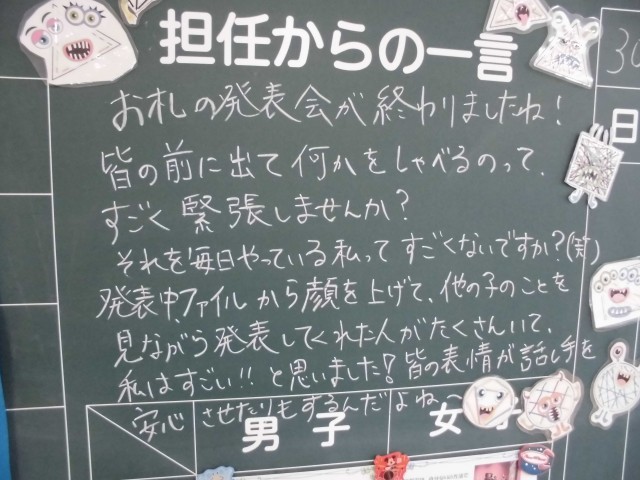 担任からの一言
30
日
お札の発表会が終わりましたね!
皆の前に出て何かをしゃべるのって、
すごく緊張しませんか?
それを毎日やっている私ってすごくないですか?(笑)
発表中、ファイルから顔を上げて、他の子のことを
見ながら発表してくれた人がたくさんいて、
私はすごい!!と思いました!皆の表情が話し手を
安心させたりもするんだよね〜
男子
女子